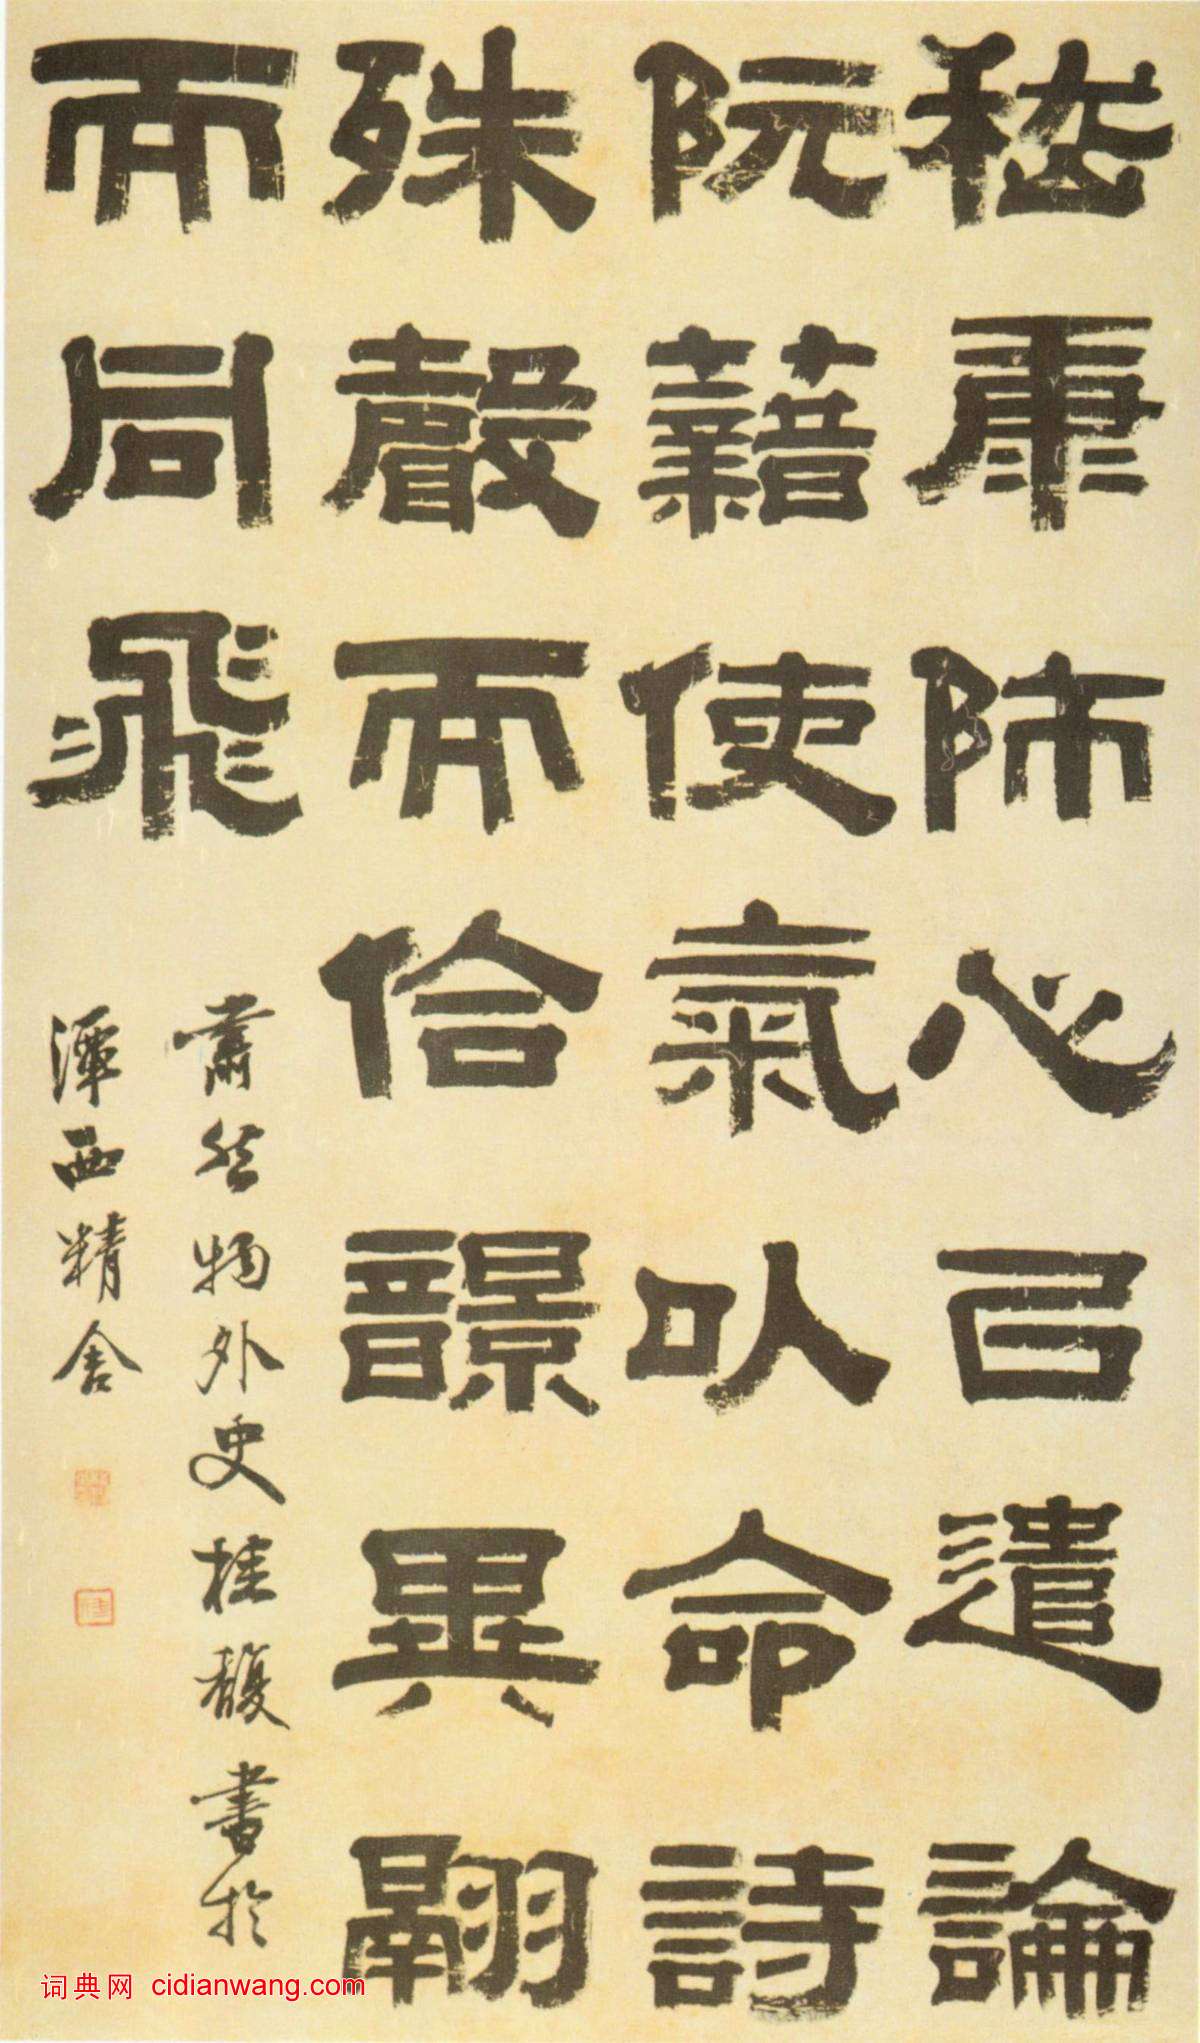 嵇康师心㠯遣論
阮藉使氣以命詩
殊聲而佮韻異翮
而同飛
肅然物外史桂馥書於
潭西精舍
词典网 cidianwang.com